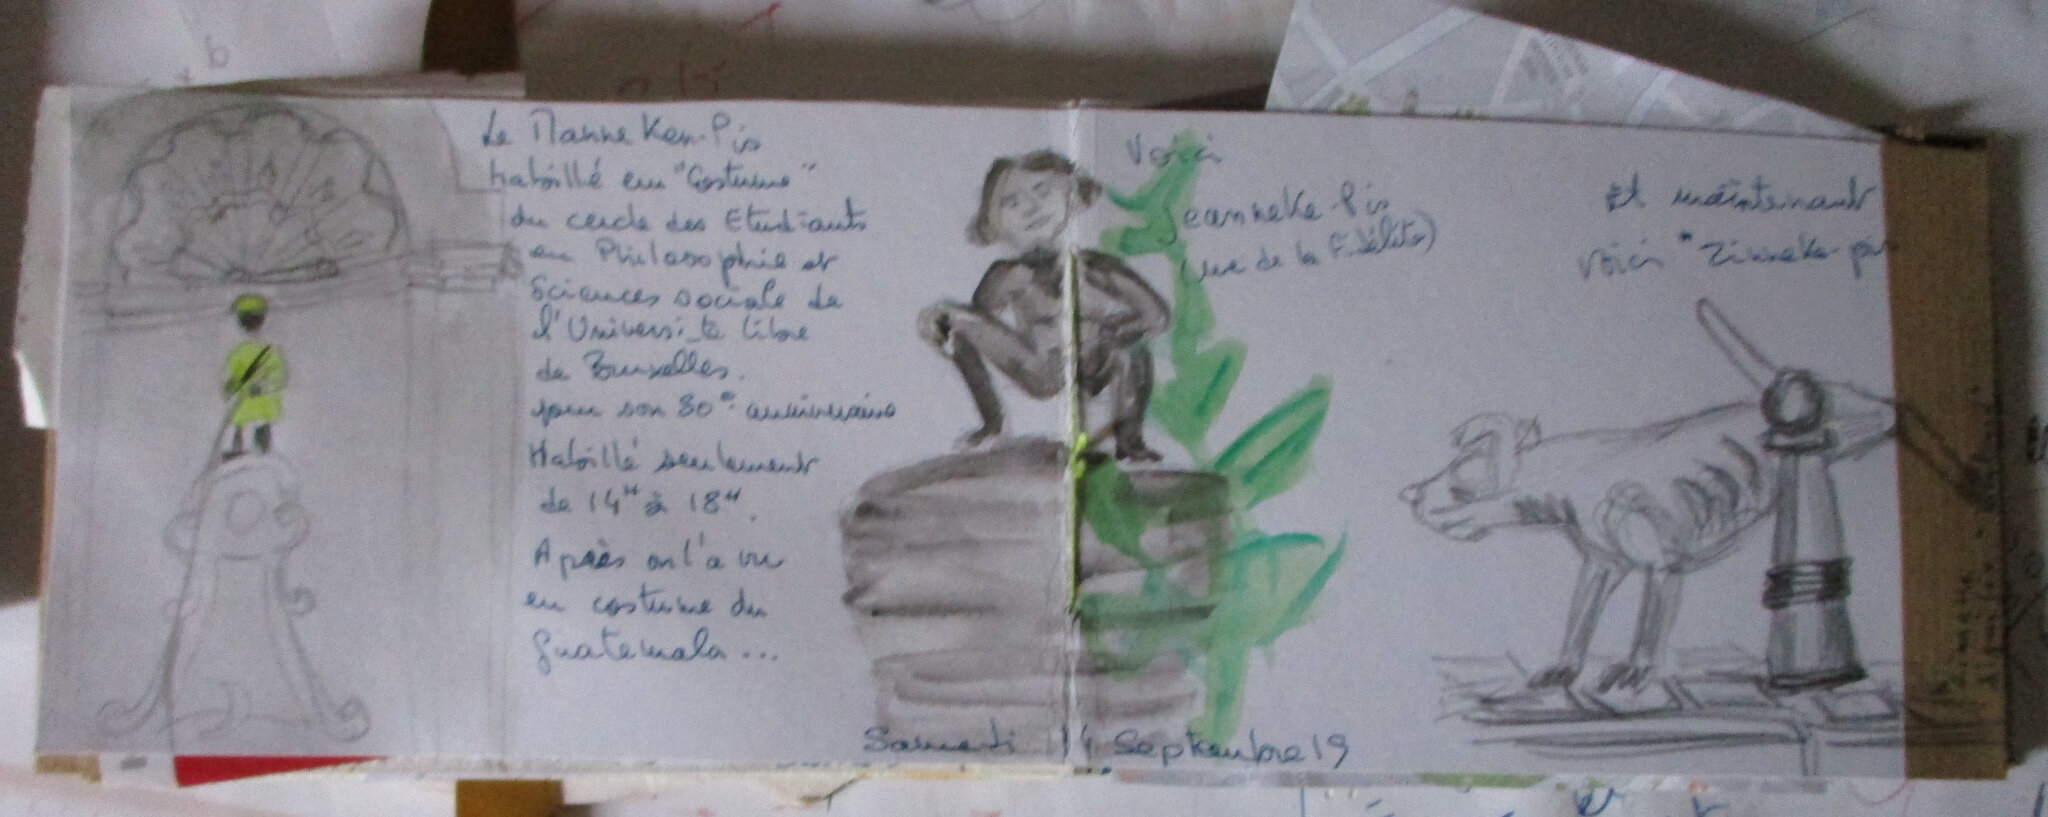 Le Manneken-Pis
habillé en "Costume"
du cercle des Etudiants
en Philosophie et
Sciences sociale de
l'Universite libre
de Bruxelles.
pour son 30e anniversaire
Habillé seulement
de 14H à 18H.
Après on l'a vu
en costume du
Guatemala...
Voici
Jeanneke-Pis
(rue de la Fidélité)
Et maintenant
voici "Zinneke-pis
Samedi 14 Septembre 19